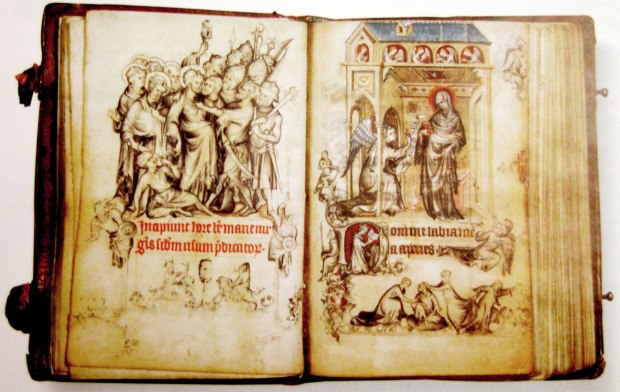 Incipiunt hore bē marie uir
gīs scdm usum p̄dicator·
Domine labia me
a aperies·